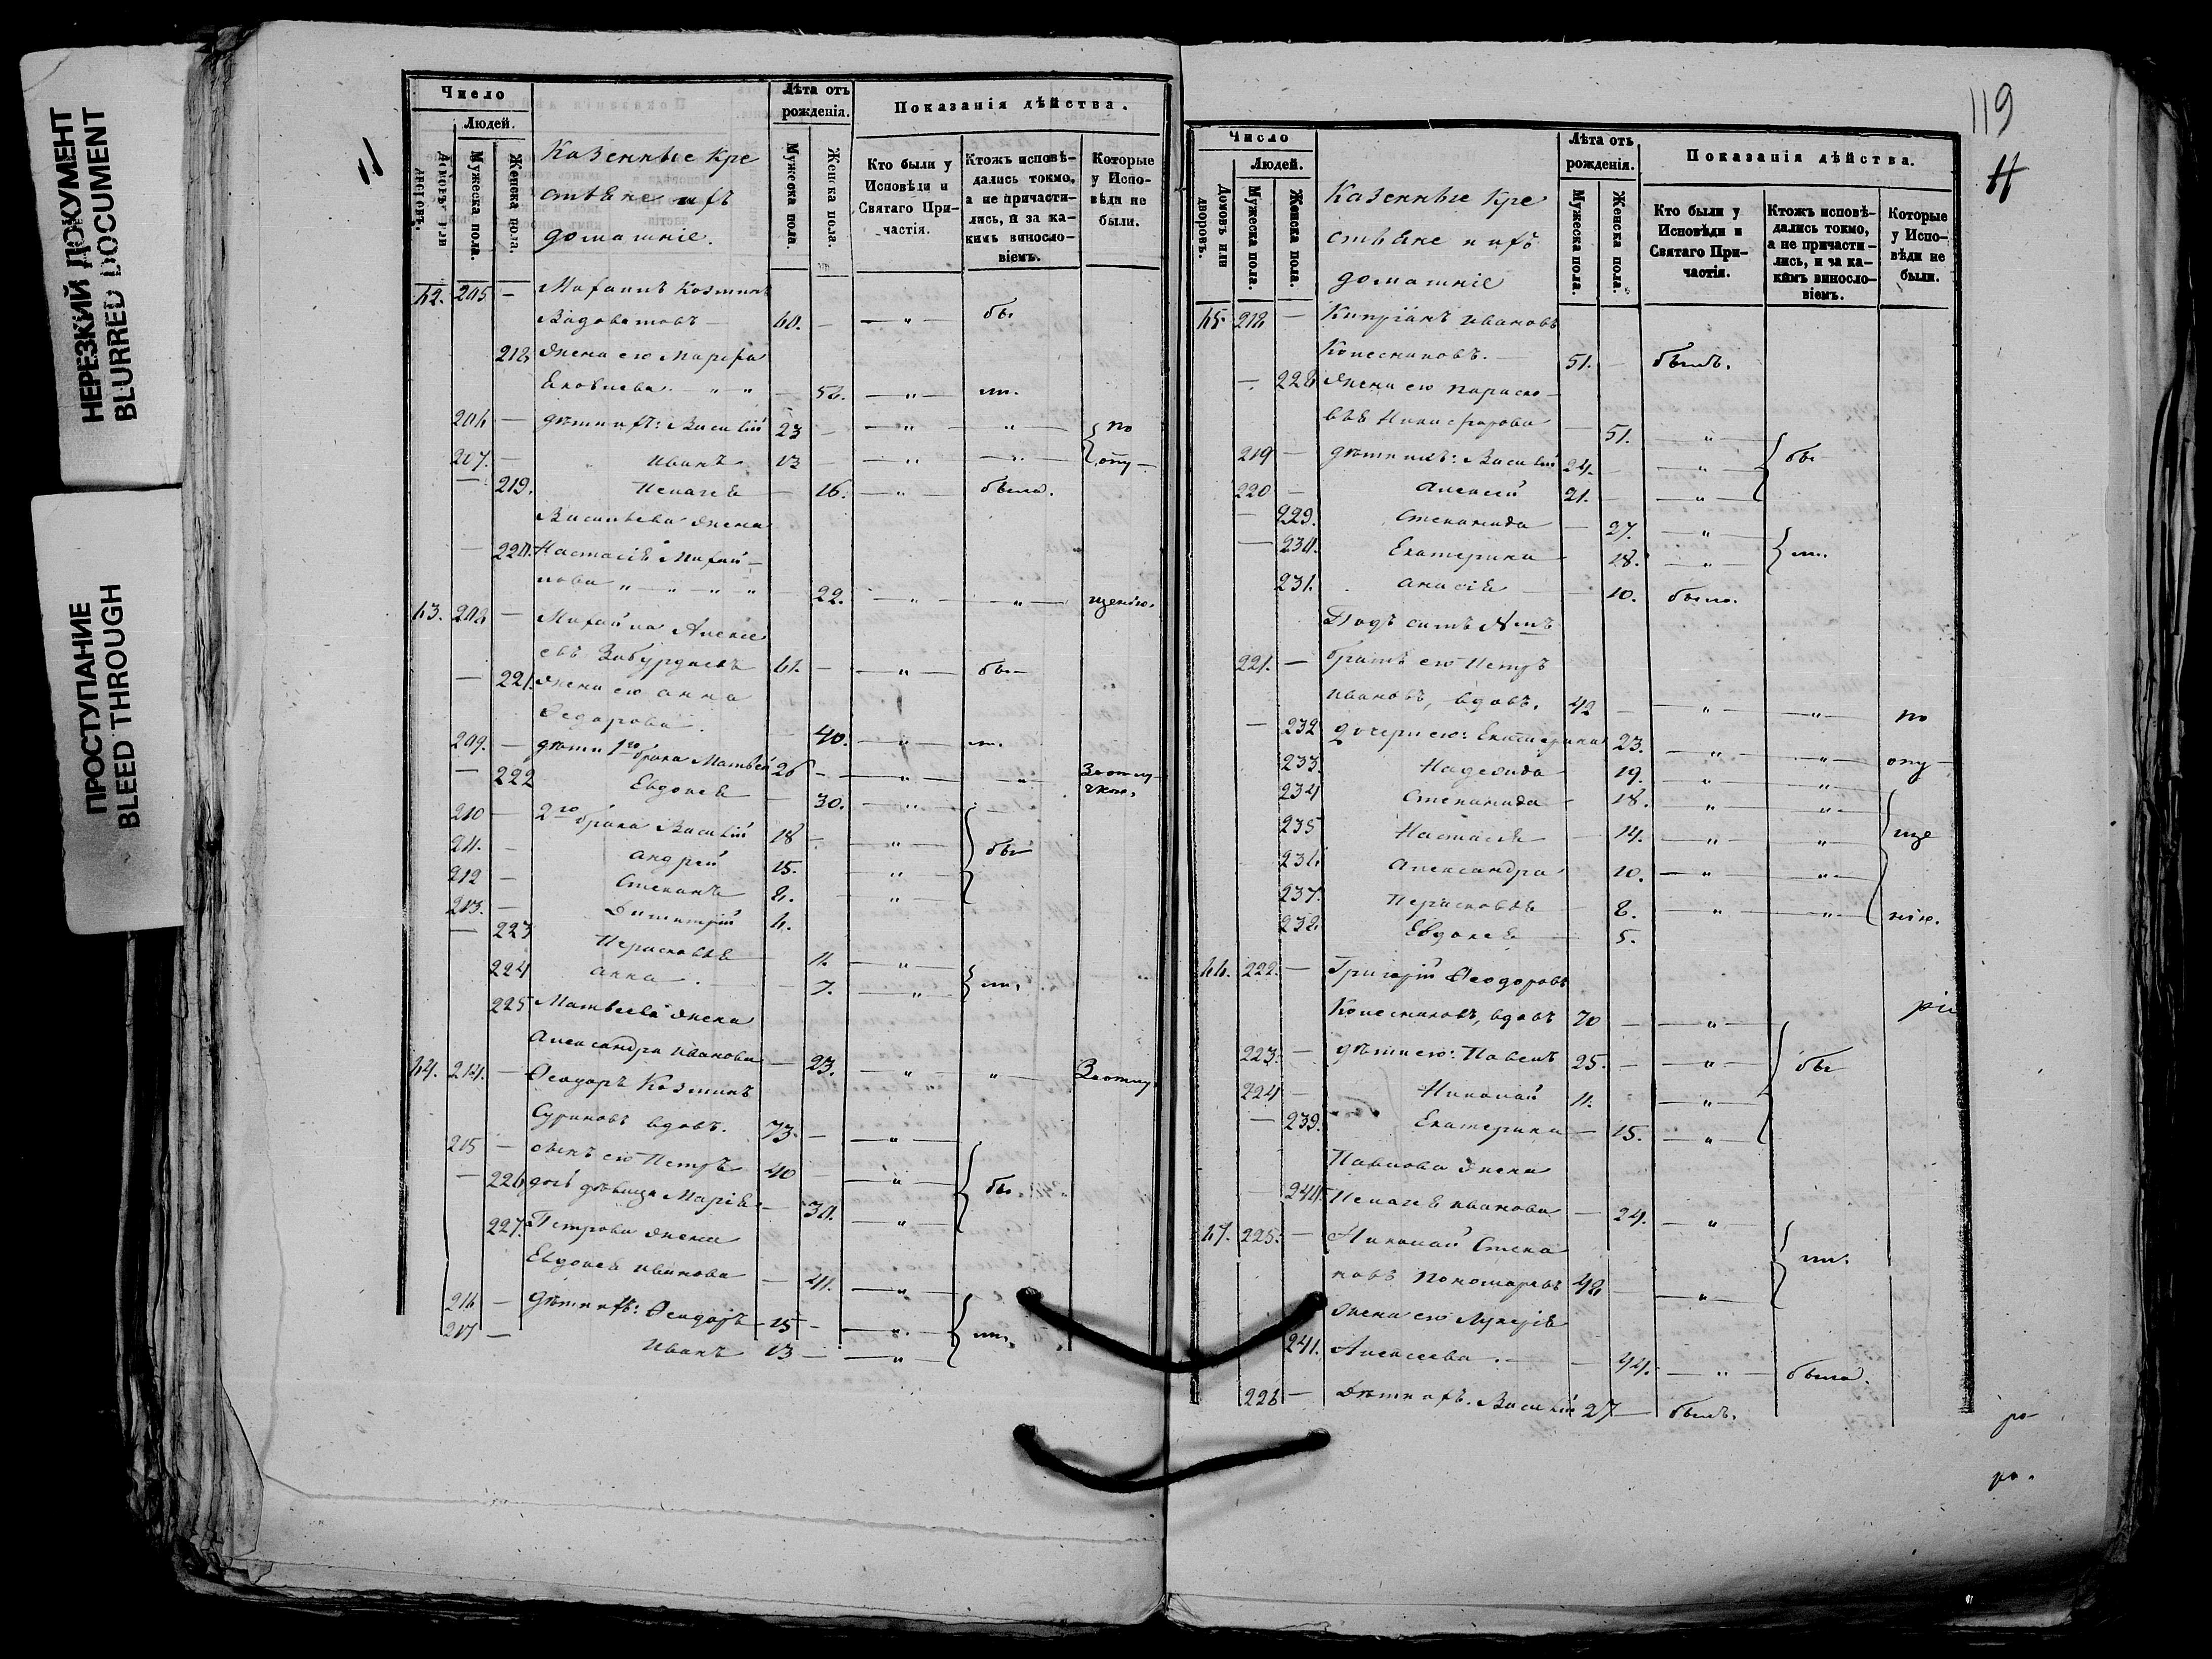 НЕРЕЗКИЙ ДОКУМЕНТ
BLURRED DOCUMENT
ПРОСТУПАНИЕ
BLEED THROUGH
Число
Людей.
Домовъ или дворовъ.
Мужеска пола.
Женска пола.
Казенные кре
стьяне и ихъ
домашніе.
Лѣта отъ рожденія.
Мужеска пола.
Женска пола.
Показанія дѣйства.
Кто были у Исповѣди и Святаго Причастія.
Ктожъ исповѣдались токмо, а не причастились, и за какимъ винословіемъ.
Которые у Исповѣди не были.
62. 205 —
60. — „ бы
218 жена его Марѳа
Яковлева — 56. „ ли.
206 — дѣти ихъ: Василій 23 — „ „ по
207. — Иванъ 13 — „ „ опу
— 219. Пелагея — 16. „ была.
Васильева жена
— 220. Настасія Михай
лова „ „ „ — 22. „ „ щенію.
63. 208 — Михайла Алексѣ
евъ 61. — „ бы
— 221. жена его Анна
Ѳедорова. — 40. „ ли.
209. — дѣти 1го брака Матвѣй 26 — „ „ За отлу
— 222 Евдокея — 30. „ чкою.
210 — 2го брака Василій 18 — „
211. — Андрей 15. „ бы
212 — Степанъ 8. „
213. — Димитрій 6.
— 223 Парасковья 11. „
224 Анна. — 7. „ ли.
225 Матвеева жена
Александра Иванова — 23. „ „ За отлу
64. 214. — Ѳеодоръ Козминъ
Суриковъ вдовъ. 73. — „
215 — сынъ его Петръ 40 — „
— 226 дочь дѣвица Марія — 30. „ бы
227. Петрова жена
Евдокея Иванова — 41. „
216 — дѣти ихъ: Ѳеодоръ 15 — „ ли.
217 — Иванъ 13 — „
119
Число
Людей.
Домовъ или дворовъ.
Мужеска пола.
Женска пола.
Казенные кре
стьяне и ихъ
домашніе
Лѣта отъ рожденія.
Мужеска пола.
Женска пола.
Показанія дѣйства.
Кто были у Исповѣди и Святаго Причастія.
Ктожъ исповѣдались токмо, а не причастились, и за какимъ винословіемъ.
Которые у Исповѣди не были.
65. 218 — Кипріанъ Ивановъ
Колесниковъ. — 51. — былъ.
— 228 жена его Параско
вья Никифорова — 51. „
219 — дѣти ихъ: Василій 24. — „ бы
220 — Алексѣй 21. — „
— 229. Степанида — 27. „
— 230. Екатерина — 18. „ ли.
231. — 10. была.
221. — братъ его Петръ
Ивановъ, вдовъ. 42 — „ „ по
— 232 дочери его: Екатерина 23. „ „ опу
233. Надежда — 19. „ „
234 Степанида — 18. „ „
235 Настасья — 14. „ „ ще
236 Александра 10. „ „
237. Парасковья — 8. „ „ нію.
238 Евдокея — 5.
66. 222. — Григорій Ѳеодоровъ
Колесниковъ, вдовъ 70 — „
223. — дѣти его: Павелъ 25. — „ бы
224 — Николай 11. „
— 239. Екатерина — 15. „
Павлова жена
240. Пелагея Иванова — 24. „
67. 225. — Николай Степа
новъ Пономаревъ 48 — „ ли.
жена его Лукерія
241. Алексеева. — 44. „ была.
226 — Дѣти ихъ: Василій 27 — былъ.